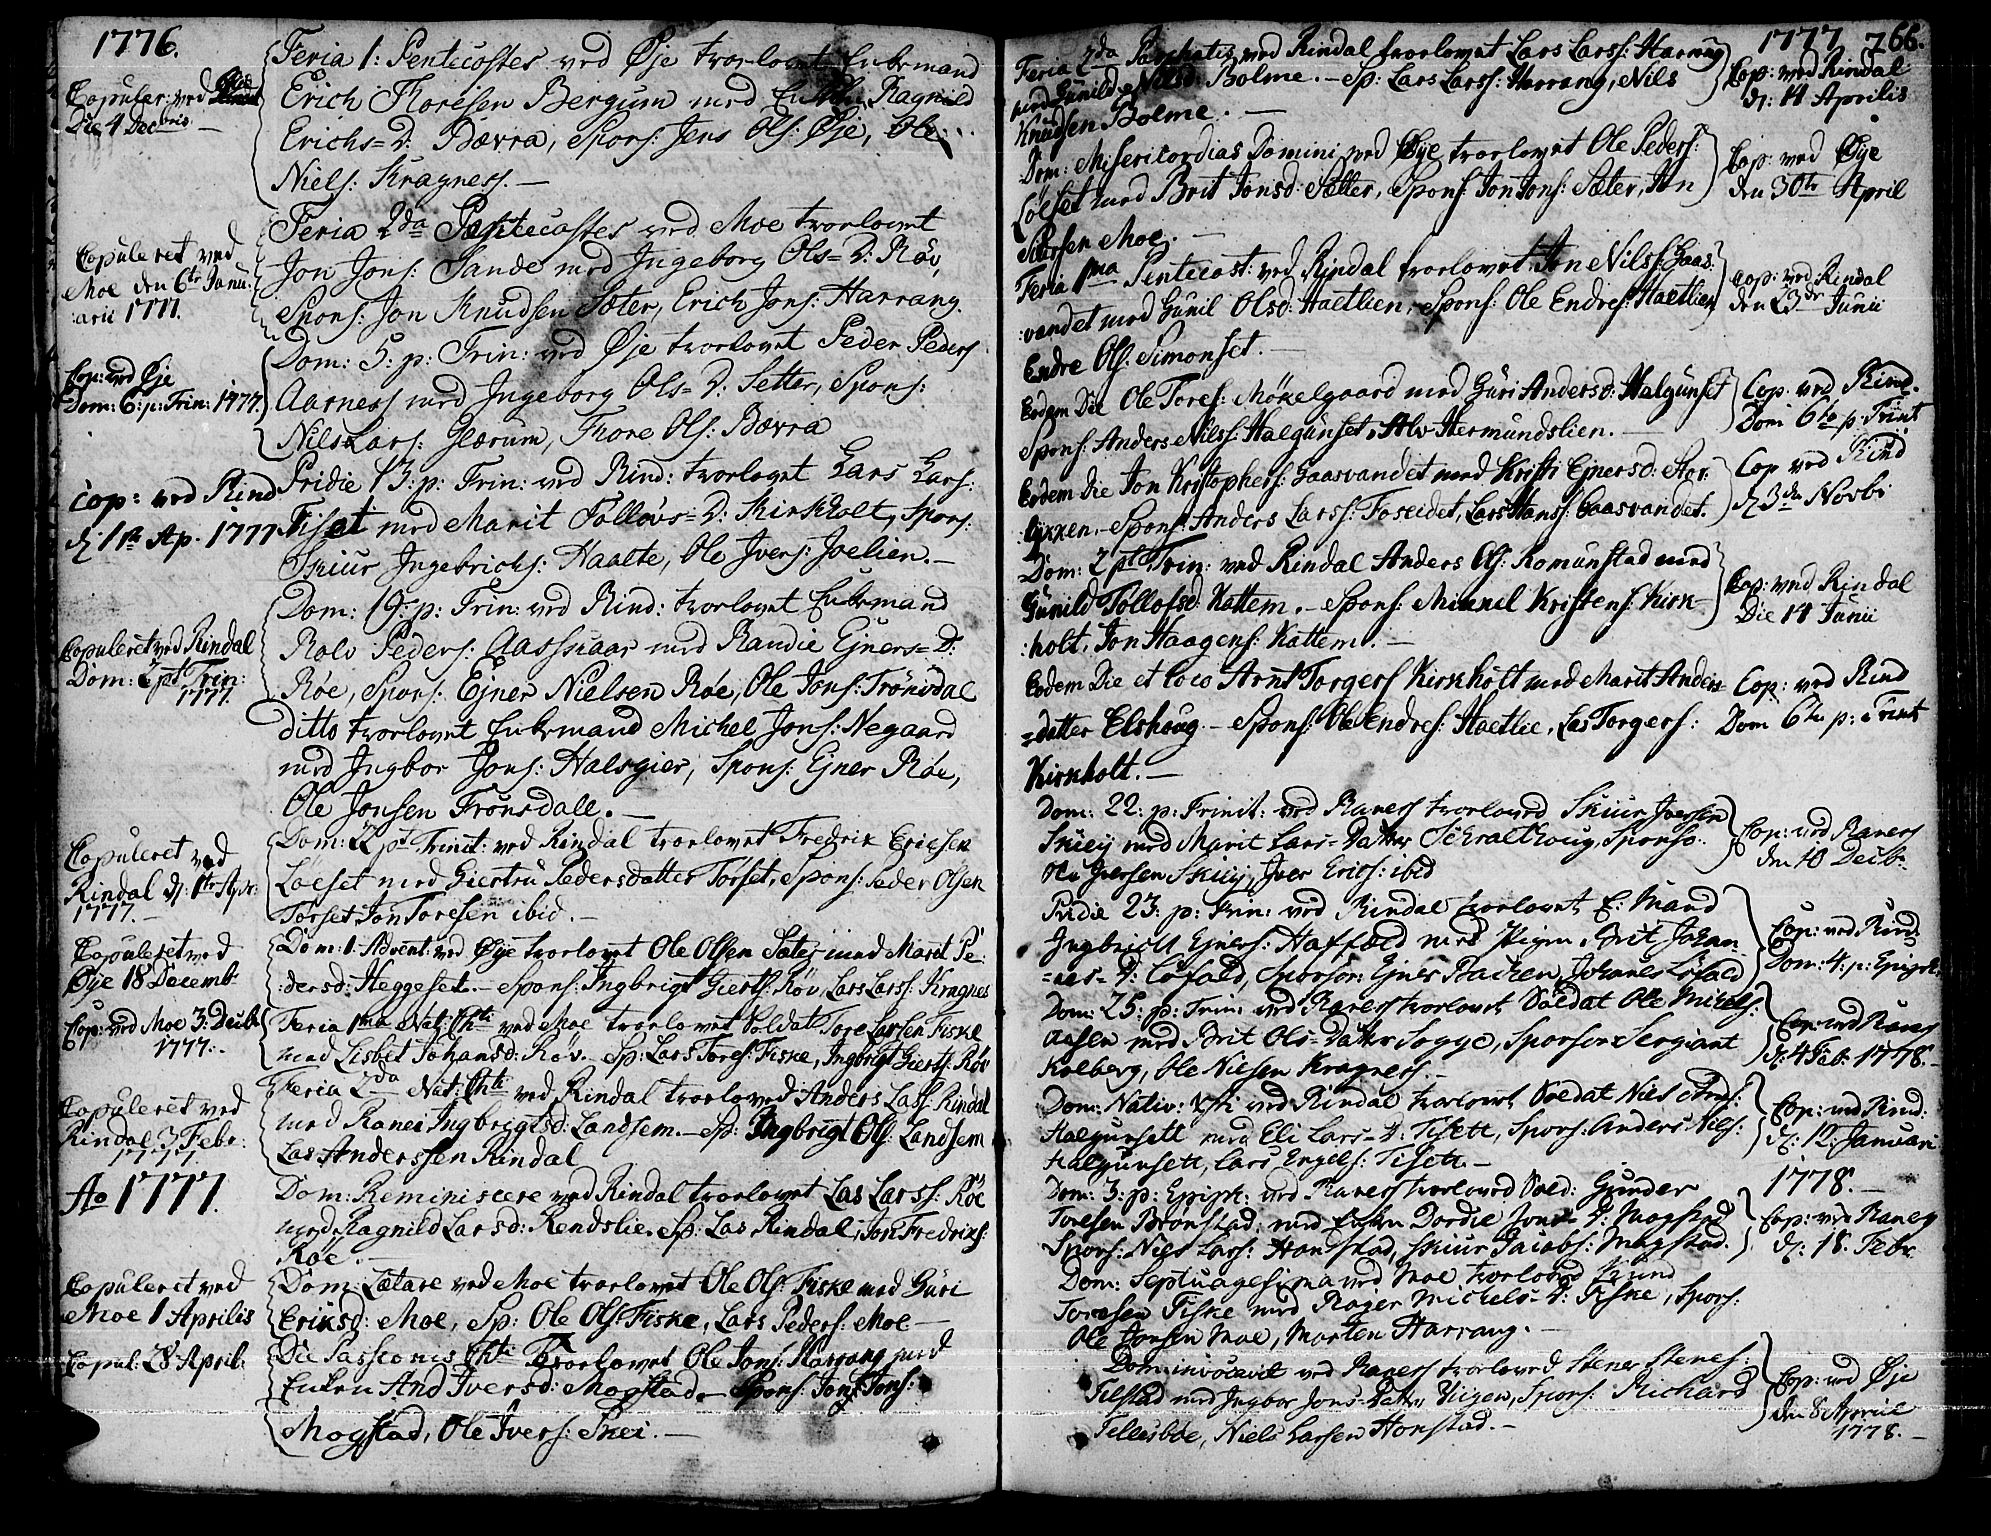 1776.
Copuler: ved Øie
Die 4 Decbris
Feria 1: Pentecostes ved Øje trorlovet Enkemand
Erich Thoresen Bergum med Enken Ragnild
Erichs=D: Bævra, Spons: Jens Ols: Øje, Ole
Niels: Kragness. —
Copuleret ved
Moe den 6te Janu:
:arii 1777.
Feria 2da Pentecostes ved Moe trorlovet
Jon Jons: Sande med Ingeborg Ols=D: Røv,
Spons: Jon Knudsen Sæter, Erich Jons: Harrang.
Cop: ved Øje
Dom: 6: p: Trin: 1777.
Dom: 5: p: Trin: ved Øje trorlovet Peder Peders
Aarness med Ingeborg Ols=D: Setter, Spons:
Nils Lars: Glærum, Thore Ols: Bævra
Cop: ved Rind
d: 1ste Ap. 1777.
Pridie 13: p: Trin: ved Rind: trorlovet Lars Lars:
Tiset med Marit Tollovs=D: Kirkholt, Spons:
Skiur Ingebrichs: Haalte, Ole Ivers: Joelien. —
Copuleret ved Rindal
Dom: 2 pt Trin:
1777.
Dom: 19: p: Trin: ved Rind: trorlovet Enkemand
Rolv Peders: Aasskaar med Randie Ejners=D:
Røe, Spons: Ejner Nielsen Røe, Ole Jons: Trönsdal
ditto trorlovet Enkemand Michel Jons: Negaard
med Ingbor Jons: Halsgier, Spons: Ejner Røe,
Ole Jonsen Trönsdale. —
Copuleret ved
Rindal d: 1ste Apr:
1777. —
Dom: 22 pt Trinit: ved Rindal trorlovet Fredrik Ericksen
Löeset med Giertru Pedersdatter Törset, Spons: Peder Olsen
Törset Jon Toresen ibid. —
Copuleret ved
Øye 18 Decemb:
Dom: 1 Advent: ved Øye trorlovet Ole Olsen Sæter med Marit Pe:
:dersd: Heggeset. — Spons: Ingbrigt Gierts: Röv, Lars Larss: Kragnes
Cop: ved Moe 3: Decbr
1777:.
Feria 1ma Nat: Chti ved Moe trorlovet Soldat Tore Larsen Fiske
med Lisbet Johansd: Röv. Sp: Lars Tores: Fiske, Ingbrigt Gierts: Röv
Copuleret ved
Rindal 3 Febr:
1777
Feria 2da Nat: Chti ved Rindal trorloved Anders Lass: Rindal
med Ranei Ingbrigtsd: Landsem. — Sp: Ingbrigt Ols: Landsem
Las Anderssen Rindal
Ao 1777.
Dom: Reminiscere ved Rindal trorlovet Las Larss: Röe
med Ragnild Larsd: Rendslie. Sp: Las Rindal, Jon Fredriks:
Röe.
Copuleret ved
Moe 1 Aprilis
Dom: Lætare ved Moe trorlovet Ole Ols: Fiske med Guri
Eriksd: Moe, Sp: Ole Ols: Fiske, Lars Peders: Moe —
Copul: 28 April:
Die Passionis Chti Trorlovet Ole Jons: Harrang med
Enken And Iversd: Mogstad. — Spons: Jons Jons:
Mogstad, Ole Ivers: Skei. —
1777
266.
Feria 2da Paschatis ved Rindal trorlovet Lars Larss: Harrang
med Gunild Nilsd: Bolme. — Sp: Lars Larss: Harrang, Nils
Knudsen Bolme. —
Cop: ved Rindal
d: 14 Aprilis
Dom: Misericordias Domini ved Øye trorlovet Ole Peders:
Löeset med Brit Jonsd: Sætter, Spons: Jon Jons: Sæter, Jon
Pedersen Moe. —
Cop: ved Øye
den 30te April
Feria 1ma Pentecost: ved Rindal trorlovet Jon Nilss: Gaas:
:vandet med Gunil Olsd: Haetlien, Spons: Ole Endres: Haetlien
Endre Ols: Simonset. —
Cop: ved Rindal
den 23de Junii
Eodem Die Ole Tores: Mökelgaard med Guri Andersd: Halgunset
Spons: Anders Nilss: Halgunset, Alv Hermundslien. —
Cop: ved Rind.
Dom 6te p: Trint
Eodem Die Jon Kristophers: Gaasvandet med Kristi Ejnersd: Stor:
:likken. — Spons: Anders Larss: Foseidet, Lars Hanss: Gaasvandet.
Cop ved Rind
d 3de Novbr
Dom: 2 pt Trin: ved Rindal Anders Ols: Romunstad med
Gunild Tollofsd: Kattem. — Spons: Mikkel Kristens: Kirk-
:holt, Jon Haagens: Kattem. —
Cop: ved Rindal
Die 14 Junii
Eodem Die et loco Arnt Torgers Kirkholt med Marit Anders
=datter Elshoug. — Spons: Ole Endres: Haetlie, Las Torgers:
Kirkholt. —
Cop: ved Rind
Dom 6te p: Trint
Dom: 22: p: Trinit: ved Raness trorloved Skiur Iversen
Skieij med Marit Lars=Datter Schralthoug, Sponso:
Ole Iversen Skieij, Iver Erics: ibid
Cop: ved Raness
den 10 Decbr.
Pridie 23: p: Trin: ved Rindal trorlovet E: Mand
Ingbricht Ejners: Haffæld med Pigen Brit Johan
=nes=D: Löfald, Sponsor: Ejner Bachen, Johanes Löfald
Cop: ved Rind:
Dom: 4: p: Epiph:
Dom: 25: p: Trin: ved Raness trorlovet Soldat Ole Mikels:
Aasen med Brit Ols=Datter Sogge, Sponsor Sergiant
Kolberg, Ole Nielsen Kragness. —
Cop: ved Raness
d: 4 Feb: 1778. —
Dom: Nativ: Xsti ved Rindal trorlovet Soldat Niels Ands:
Halgunsett med Eli Lars=D: Tisett, Spons: Anders Niels:
Halgunsett, Lars Engels: Tisett. —
Cop: ved Rind:
d: 12: Januari
1778. —
Dom: 3: p: Epiph: ved Raness trorloved Sold: Gunder
Toresen Brönstad med Enken Dordie Jons=D: Mogstad
Spons: Niels Lars: Honstad, Skiur Jacobs: Mogstad.
Cop: ved Raness
d: 18. Febr.
Dom: Septuagesima ved Moe trorloved Knud
Toresen Fiske med Roger Michels=D: Fiske, Spons:
Ole Jonsen Moe, Morten Harrang. —
Dom: Invocavit ved Raness trorloved Stener Stenes:
Telstad med Ingbor Jons=Datter Uigen, Spons: Richard
Tellesböe, Niels Larsen Honstad. —
Cop: ved Øje
den 8 Aprill
1778. —